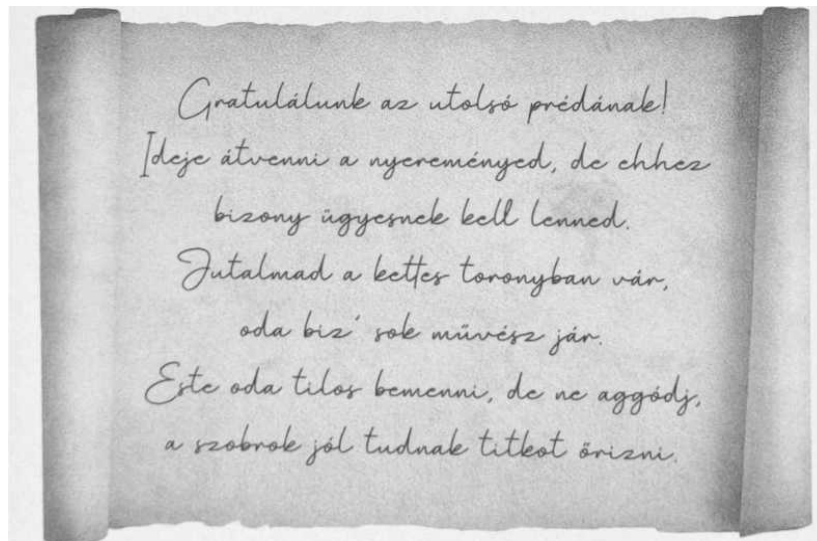 Gratulálunk az utolsó prédának!
Ideje átvenni a nyereményed, de ehhez
bizony ügyesnek kell lenned.
Jutalmad a kettes toronyban vár,
oda biz' sok művész jár.
Este oda tilos bemenni, de ne aggódj,
a szobrok jól tudnak titkot őrizni.